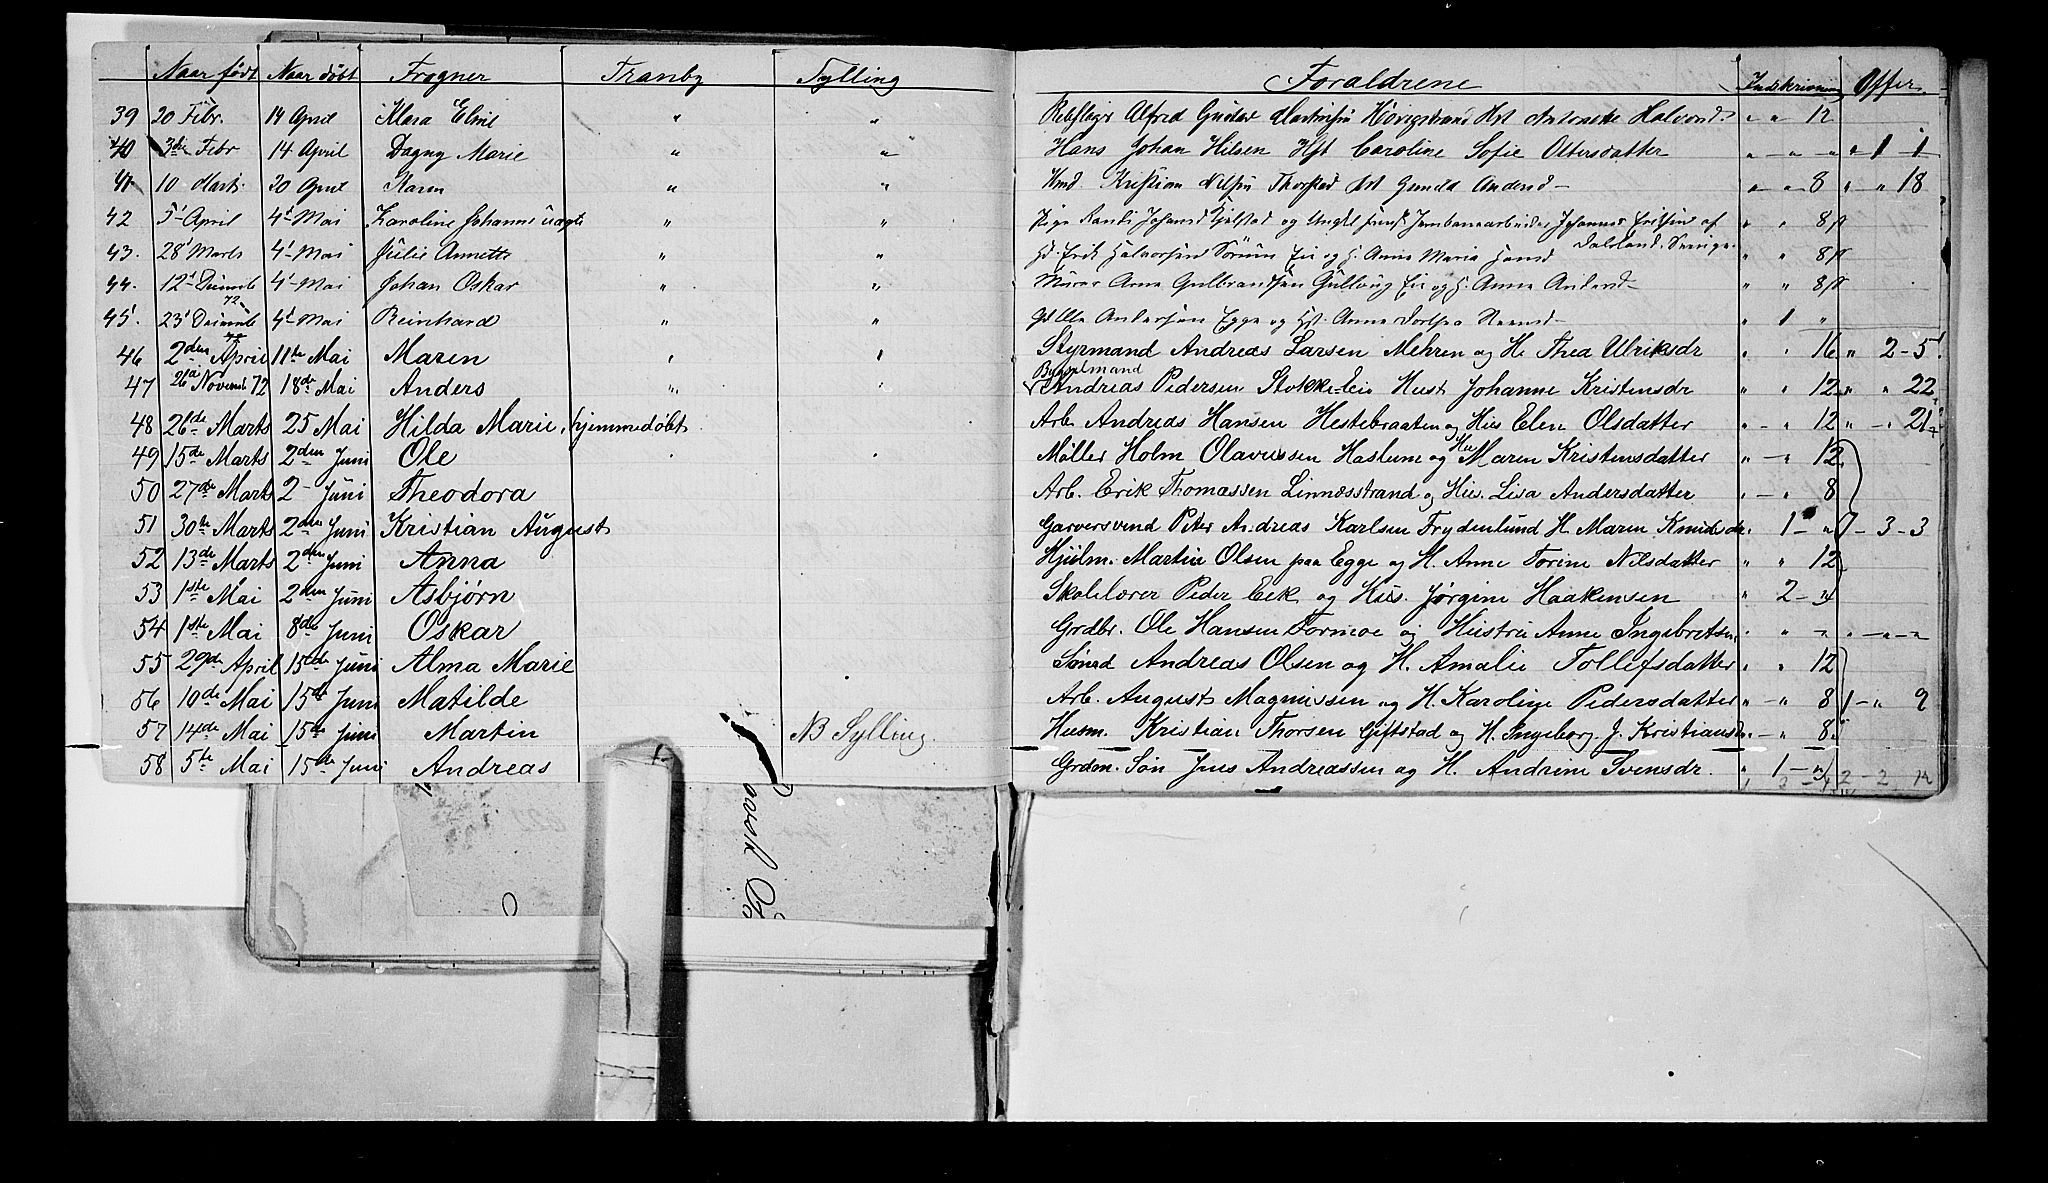 Naar født Naar døbt Frogner Tranby Sylling Foraldrene Indskrivning Offer.
39 20 Febr. 14 April Klara Elmie " " Alfred Gustav Høvigstrand Hst Antonette Halvorsd. " " 12
40 3de Febr 14 April Dagny Marie " " Hans Johan Hilsen Hst Caroline Sofie Ottersdatter " - " - " " 1 - 1
41 10 Marts. 20 April Karen " " Hmd. Kristian Nilsen Thorstad Hst Gunild Andersd - " - " 8 " " 18
42 5' April 4de Mai Karoline Johanne uægte " " Pige Randi Johansd Kjelstad og Ungkl Jernbanearbeider Johannes Eriksen af " " 8 ß
Dalsland. Sverige.
43. 28' Marts 4' Mai Julie Annette " " Hd. Erik Halvorsen Sørum Eie og H. Anne Maria Hansd " " 8 ß
44. 12te Decemb 72 4' Mai Johan Oskar " " Murer Arne Gulbrandsen Gullaug Eie og H. Anne Andersd - " " 8 ß
45. 23' Decemb 72 4de Mai Reinhard " " Andersen Egge og Hst. Anne " 1 "
46 2den April 11te Mai Maren Styrmand Andreas Larsen Mehren og H. Thea Ulriksdr " " 16 " 2 - 5.
47 26de Novemb 72 18de Mai Anders " Bygselmand Andreas Pedersen Stokke-Eie Hust Johanne Kristensdr " " 12 " " 22
48 26de Marts 25 Mai Hilda Marie, hjemmedøbt Arb. Andreas Hansen Hestebraaten og Hus Elen Olsdatter " - " 12 " - " 21
49 15de Marts 2den Juni Ole Møller Holm Olavessen Haslum og Hu Maren Kristensdatter " - " 12
50 27de Marts 2 - Juni Theodora Arb. Erik Thomassen Linnæsstrand og Hus. Lisa Andersdatter " - " 8
51 30te Marts 2den Juni Kristian August Garversvend Peter Andreas Karlsen Frydenlund H. Maren Knudsdr. 1 - " 7 - 3 - 3
52 13de Marts 2den Juni Anna Hjulm. Martin Olsen paa Egge og H. Anne Torine Nilsdatter " " 12
53 1ste Mai 2den Juni Asbjørn Skolelærer Peder Eek og Hus. Jørgine Haakensen " 2 - "
54 1ste Mai 8de Juni Oskar Grdbr. Ole Hansen Tormoe og Hustru Anne Ingebretsn. " " - " " - " - "
55 29de April 15de Juni Alma Marie Andreas Olsen og H. Amalie Tollefsdatter " " 12
56 10de Mai 15de Juni Matilde Arb. August Magnussen og H. Karoline Pedersdatter " - " 8 1 - " 9
57 14de Mai 15de Juni Martin NB Sylling. Husm. Kristian Thorsen Giftstad og H. Ingeborg J. Kristiansdr. " - " 8
58 5te Mai 15de Juni Andreas Grdm. Søn Jens Andreassen og H. Andrine Svensdr. " 1 - " 2 - 2